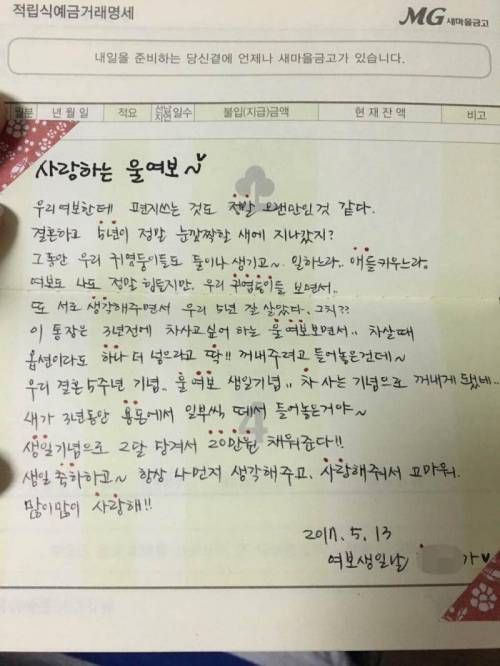 적립식예금거래명세
MG 새마을금고
내일을 준비하는 당신곁에 언제나 새마을금고가 있습니다.
월분 년 월 일 적요 선납 지연 일수 불입(지급)금액 현 재 잔 액 비고
사랑하는 울여보~♥
우리여보한테 편지쓰는 것도 정말 오랜만인것 같다.
결혼하고 5년이 정말 눈깜짝할 새에 지나갔지?
그동안 우리 귀염둥이들도 둘이나 생기고~ 일하느라.. 애들키우느라,
여보도 나도 정말 힘들지만, 우리 귀염둥이들 보면서..
또 서로 생각해주면서 우리 5년 잘 살았다. 그치??
이 통장은 3년전에 차사고싶어 하는 울여보보면서.. 차살때
옵션이라도 하나 더 넣으라고 딱!! 꺼내주려고 들어놓은건데~
우리 결혼5주년 기념.. 울여보 생일기념.. 차 사는 기념으로 꺼내게 됐네..
내가 3년동안 용돈에서 일부씩 떼서 들어놓은거야~
생일기념으로 2달 당겨서 20만원 채워준다!!
생일 축하하고~ 항상 나먼저 생각해주고, 사랑해줘서 고마워.
많이많이 사랑해!!
2017. 5. 13
여보생일날 가♥
4